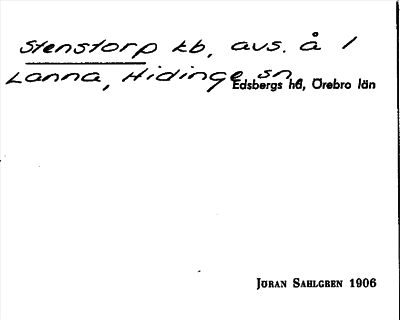 Stenstorp kb, avs. å 1
Lanna, Hidinge sn
Edsbergs hd, Örebro län
JÖRAN SAHLGREN 1906